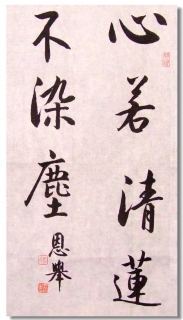 心若清蓮
不染塵
恩舉